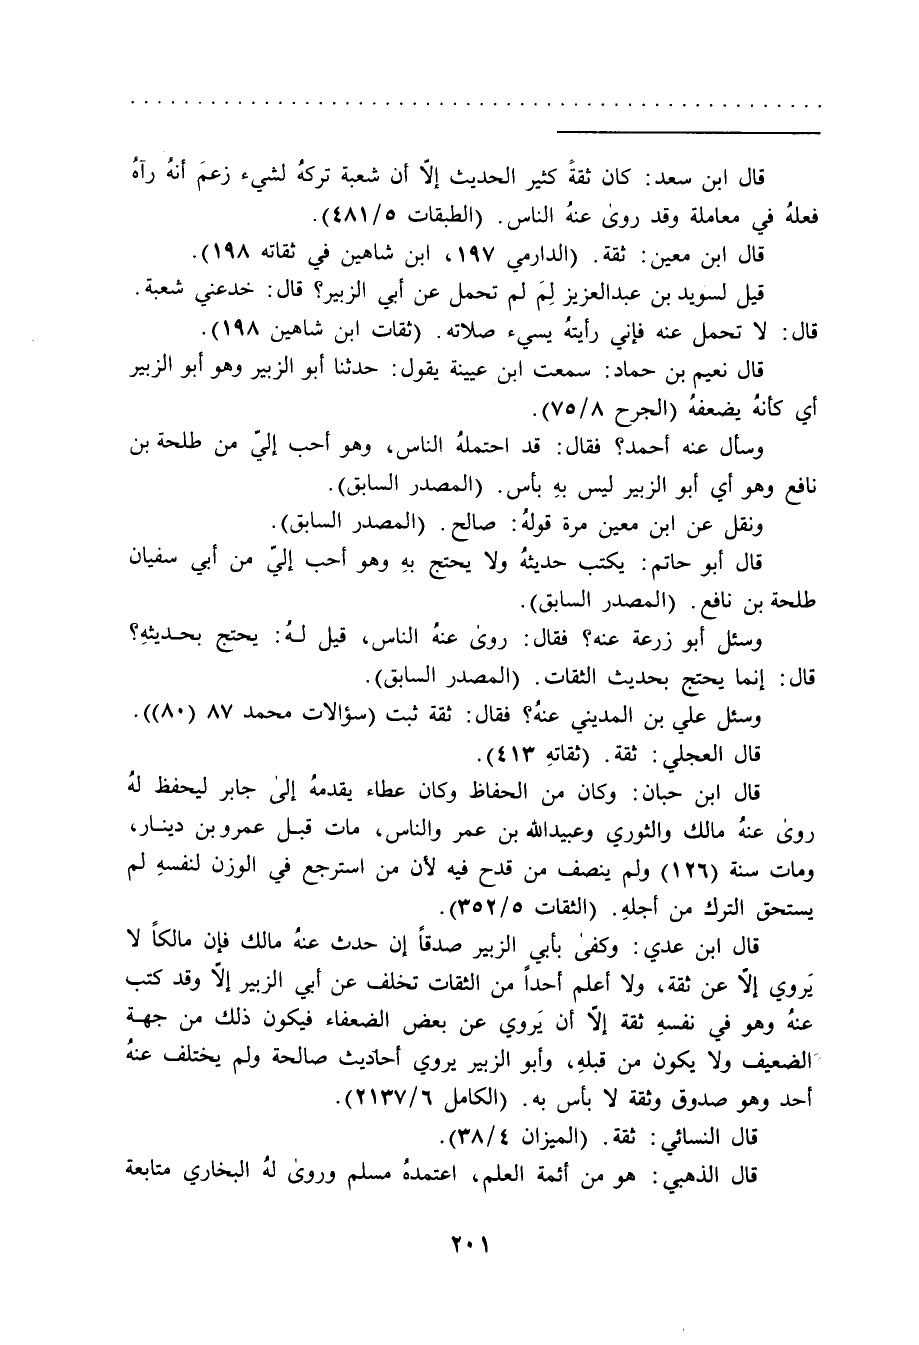 قال ابن سعد: كان ثقةً كثير الحديث إلّا أن شعبة تركهُ لشيء زعمَ أنهُ رآهُ
فعلهُ في معاملة وقد روىٰ عنهُ الناس. (الطبقات ٥/٤٨١).
قال ابن معين: ثقة. (الدارمي ١٩٧، ابن شاهين في ثقاته ١٩٨).
قيل لسويد بن عبدالعزيز لِمَ لم تحمل عن أبي الزبير؟ قال: خدعني شعبة.
قال: لا تحمل عنه فإني رأيتهُ يسيء صلاته. (ثقات ابن شاهين ١٩٨).
قال نعيم بن حماد: سمعت ابن عيينة يقول: حدثنا أبو الزبير وهو أبو الزبير
أي كأنهُ يضعفهُ (الجرح ٧٥/٨).
وسأل عنه أحمد؟ فقال: قد احتملهُ الناس، وهو أحب إليّ من طلحة بن
نافع وهو أي أبو الزبير ليس بهِ بأس. (المصدر السابق).
ونقل عن ابن معين مرة قولهُ: صالح. (المصدر السابق).
قال أبو حاتم: يكتب حديثهُ ولا يحتج بهِ وهو أحب إليّ من أبي سفيان
طلحة بن نافع. (المصدر السابق).
وسئل أبو زرعة عنه؟ فقال: روىٰ عنهُ الناس، قيل لهُ: يحتج بحديثهِ؟
قال: إنما يحتج بحديث الثقات. (المصدر السابق).
وسئل علي بن المديني عنهُ؟ فقال: ثقة ثبت (سؤالات محمد ٨٧ (٨٠)).
قال العجلي: ثقة. (ثقاتهِ ٤١٣).
قال ابن حبان: وكان من الحفاظ وكان عطاء يقدمهُ إلىٰ جابر ليحفظ لهُ
روىٰ عنهُ مالك والثوري وعبيدالله بن عمر والناس، مات قبل عمرو بن دينار،
ومات سنة (١٢٦) ولم ينصف من قدح فيه لأن من استرجع في الوزن لنفسهِ لم
يستحق الترك من أجلهِ. (الثقات ٣٥٢/٥).
قال ابن عدي: وكفىٰ بأبي الزبير صدقاً إن حدث عنهُ مالك فإن مالكاً لا
يَروي إلّا عن ثقة، ولا أعلم أحداً من الثقات تخلف عن أبي الزبير إلّا وقد كتب
عنهُ وهو في نفسهِ ثقة إلّا أن يَروي عن بعض الضعفاء فيكون ذلك من جهة
الضعيف ولا يكون من قبلهِ، وأبو الزبير يروي أحاديث صالحة ولم يختلف عنهُ
أحد وهو صدوق وثقة لا بأس به. (الكامل ٢١٣٧/٦).
قال النسائي: ثقة. (الميزان ٣٨/٤).
قال الذهبي: هو من أئمة العلم، اعتمدهُ مسلم وروىٰ لهُ البخاري متابعة
٢٠١